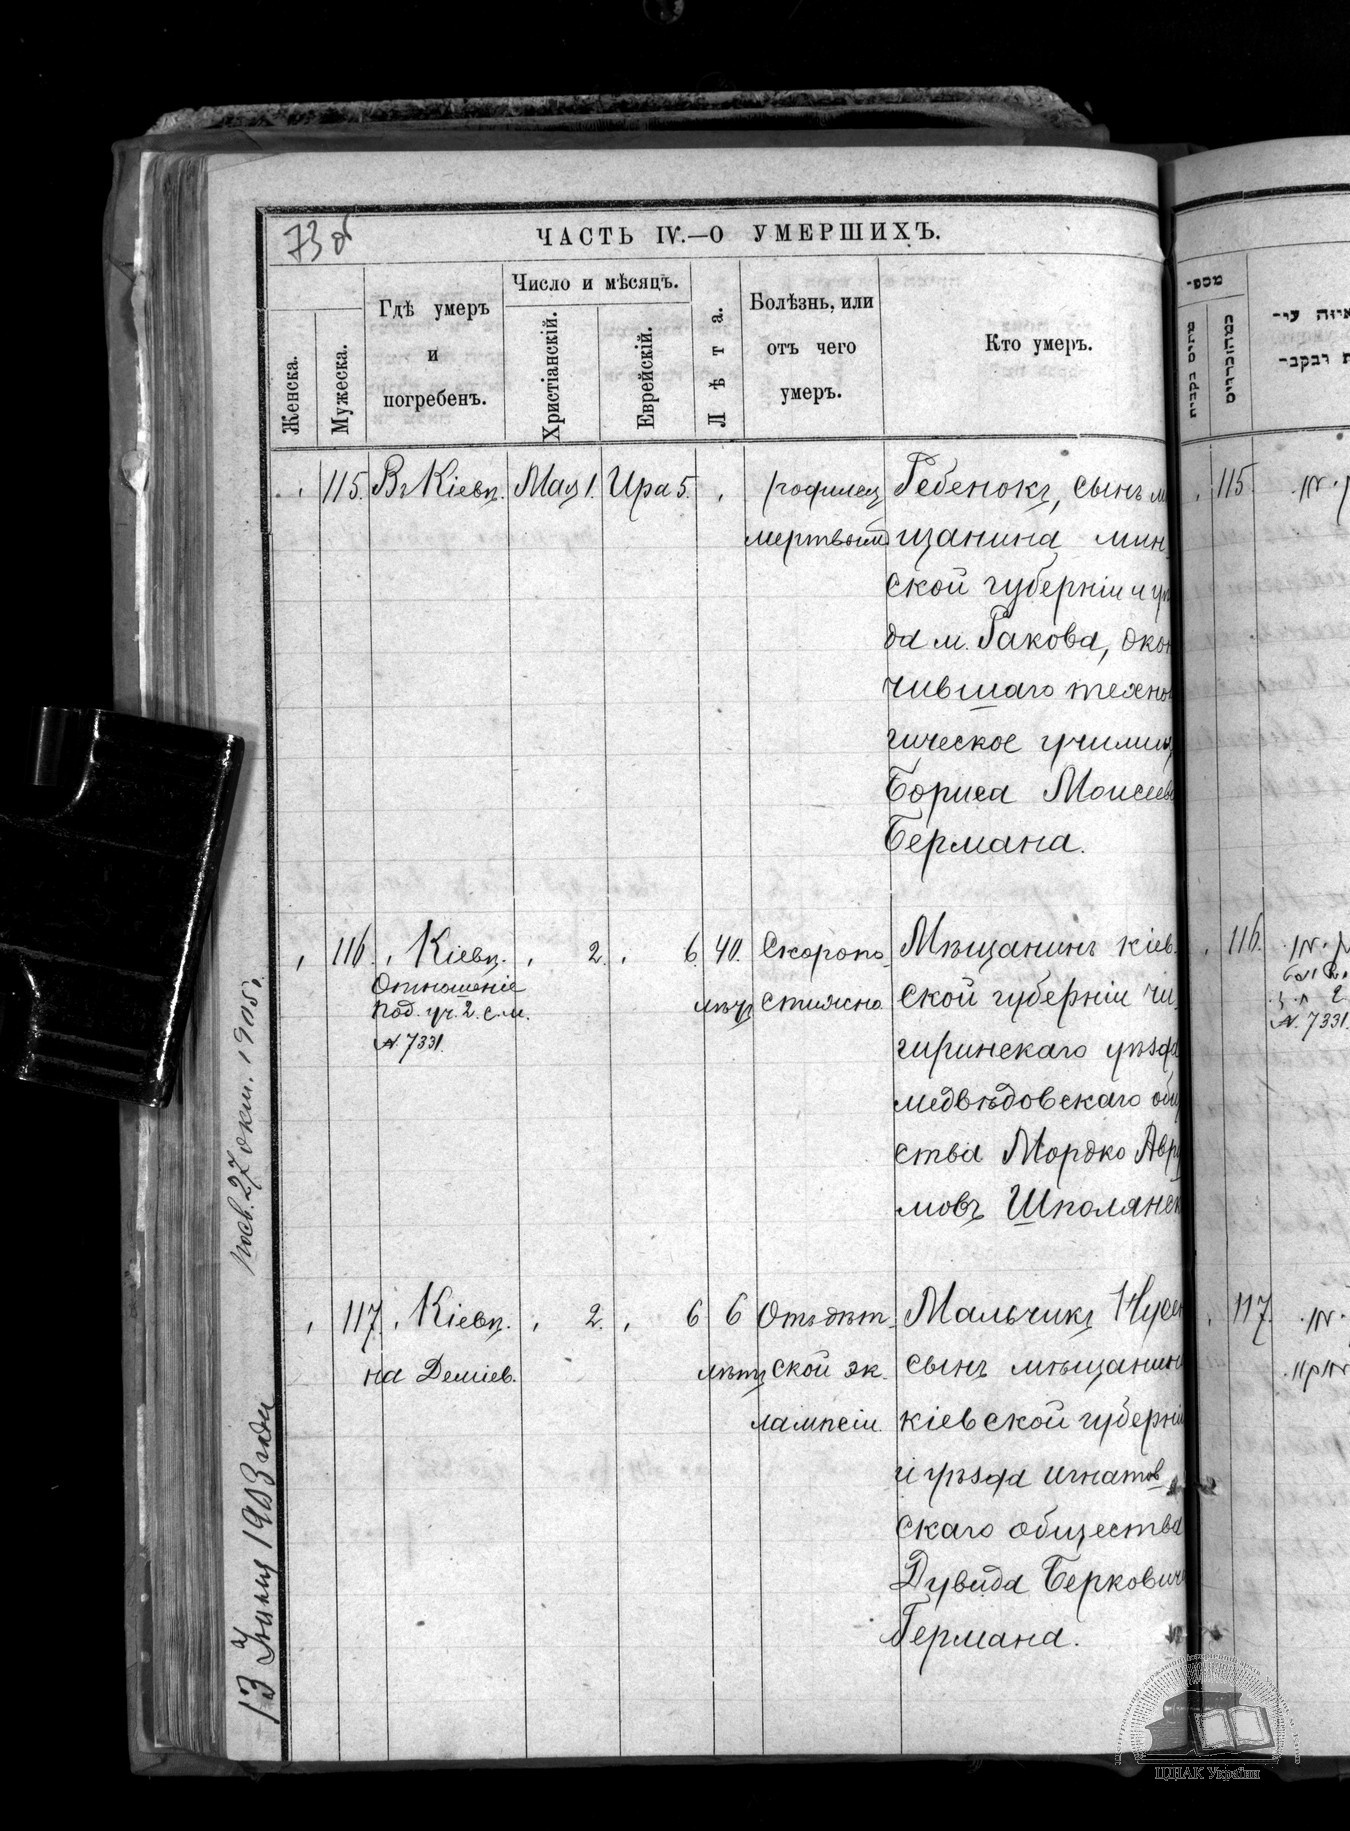 73 об
ЧАСТЬ IV.—О УМЕРШИХЪ.
Женска.
Мужеска.
Гдѣ умеръ
и
погребенъ.
Число и мѣсяцъ.
Христіанскій.
Еврейскій.
Лѣта.
Болѣзнь, или
отъ чего
умеръ.
Кто умеръ.
115. Въ Кіевѣ. Мая 1. Ира 5.
родился
мертвымъ
Ребенокъ, сынъ мѣ
щанина мин
ской губерніи и уѣз
да м. Ракова, окон
чившаго техноло
гическое училищ
Бориса Моисеев
Бермана.
116. Кіевѣ. 2. 6. 40.
Отношеніе
Пол. уч. 2. с. м.
№ 7331.
лѣтъ
Скоропо
стижно
Мѣщанинъ кіев
ской губерніи чи
гиринскаго уѣзда
медвѣдовскаго общ
ства Мордко Авру
мовъ Шполянск
117. Кіевѣ. 2. 6 6
на Деміев.
лѣтъ
Отъ дѣт
ской эк
лампсіи.
Мальчикъ Нусен
сынъ мѣщанина
кіевской губерніи
и уѣзда игнатов
скаго общества
Дувида Беркович
Германа.
посв. 27 окт. 1905г.
13 Іюня 1903 года
מספ־
115
116.
№ 7331.
117.
ЦДІАК України